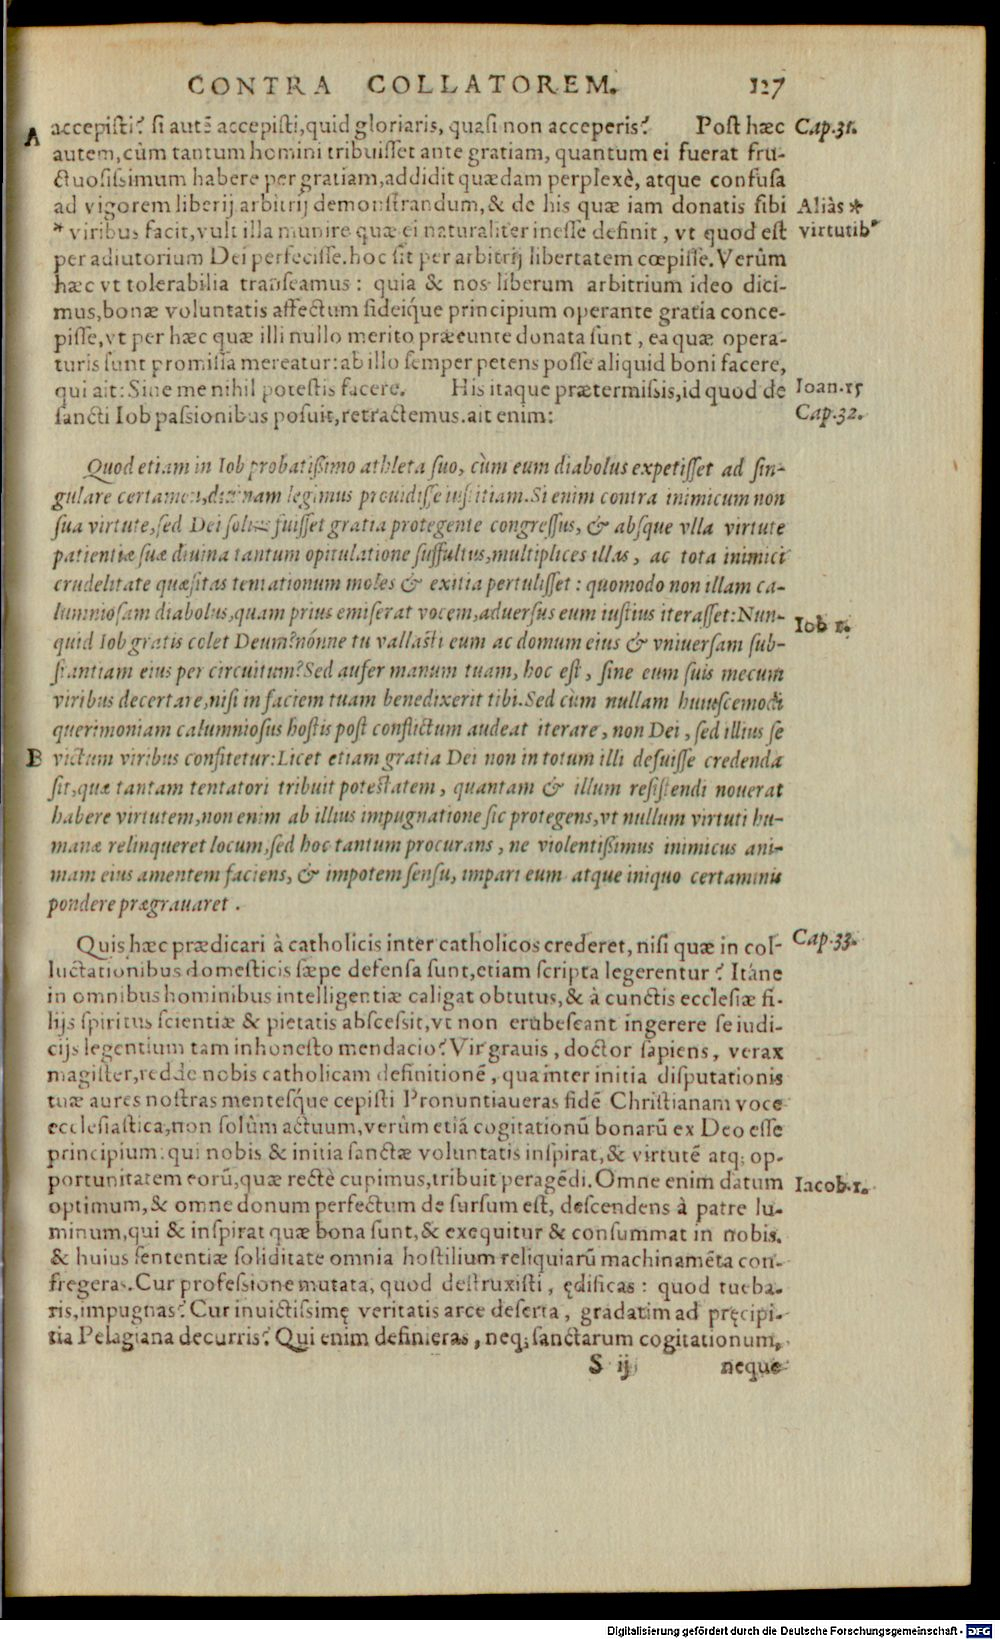 CONTRA COLLATOREM. 127
A accepisti? si autē accepisti,quid gloriaris, quasi non acceperis? Post hæc Cap.31.
autem,cùm tantum homini tribuisset ante gratiam, quantum ei fuerat fru-
ctuosissimum habere per gratiam,addidit quædam perplexè, atque confusa
ad vigorem liberij arbitrij demonstrandum,& de his quæ iam donatis sibi Aliàs *
* viribus facit,vult illa munire quæ ei naturaliter inesse definit , vt quod est virtutib⁹
per adiutorium Dei perfecisse.hoc sit per arbitrij libertatem cœpisse.Verùm
hæc vt tolerabilia transeamus : quia & nos liberum arbitrium ideo dici-
mus,bonæ voluntatis affectum fideiq́ue principium operante gratia conce-
pisse,vt per hæc quæ illi nullo merito præeunte donata sunt , ea quæ opera-
turis sunt promissa mereatur:ab illo semper petens posse aliquid boni facere,
qui ait:Sine me nihil potestis facere. His itaque prætermissis,id quod de Ioan.15
sancti Iob passionibus posuit,retractemus.ait enim: Cap.32.
Quod etiam in Iob probatissimo athleta suo, cùm eum diabolus expetisset ad sin-
gulare certamen,diuinam legimus prouidisse iustitiam.Si enim contra inimicum non
sua virtute,sed Dei solius fuisset gratia protegente congressus, & absque vlla virtute
patientiæ suæ diuina tantum opitulatione suffultus,multiplices illas, ac tota inimici
crudelitate quæsitas tentationum moles & exitia pertulisset : quomodo non illam ca-
lumniosam diabolus,quam prius emiserat vocem,aduersus eum iustius iterasset:Nun-
quid Iob gratis colet Deum?nónne tu vallasti eum ac domum eius & vniuersam sub- Iob 1.
stantiam eius per circuitum?Sed aufer manum tuam, hoc est, sine eum suis mecum
viribus decertare,nisi in faciem tuam benedixerit tibi.Sed cùm nullam huiuscemodi
querimoniam calumniosus hostis post conflictum audeat iterare, non Dei, sed illius se
B victum viribus confitetur:Licet etiam gratia Dei non in totum illi defuisse credenda
sit,quæ tantam tentatori tribuit potestatem, quantam & illum resistendi nouerat
habere virtutem,non enim ab illius impugnatione sic protegens,vt nullum virtuti hu-
manæ relinqueret locum,sed hoc tantum procurans, ne violentissimus inimicus ani-
mam eius amentem faciens, & impotem sensu, impari eum atque iniquo certaminis
pondere prægrauaret .
Quis hæc prædicari à catholicis inter catholicos crederet, nisi quæ in col- Cap.33.
luctationibus domesticis sæpe defensa sunt,etiam scripta legerentur? Itáne
in omnibus hominibus intelligentiæ caligat obtutus,& à cunctis ecclesiæ fi-
lijs spiritus scientiæ & pietatis abscessit,vt non erubescant ingerere se iudi-
cijs legentium tam inhonesto mendacio? Vir grauis, doctor sapiens, verax
magister,redde nobis catholicam definitionē, qua inter initia disputationis
tuæ aures nostras mentesq́ue cepisti Pronuntiaueras fidē Christianam voce
ecclesiastica,non solùm actuum,verùm etiā cogitationū bonarū ex Deo esse
principium:qui nobis & initia sanctæ voluntatis inspirat,& virtutē atq; op-
portunitatem eorū,quæ rectè cupimus,tribuit peragēdi.Omne enim datum Iacob.1.
optimum,& omne donum perfectum de sursum est, descendens à patre lu-
minum,qui & inspirat quæ bona sunt,& exequitur & consummat in nobis.
& huius sententiæ soliditate omnia hostilium reliquiarū machinamēta con-
fregeras.Cur professione mutata, quod destruxisti, ędificas : quod tueba-
ris,impugnas? Cur inuictissimę veritatis arce deserta, gradatim ad pręcipi-
tia Pelagiana decurris? Qui enim definieras, neq; sanctarum cogitationum,
S ij neque
Digitalisierung gefördert durch die Deutsche Forschungsgemeinschaft - DFG